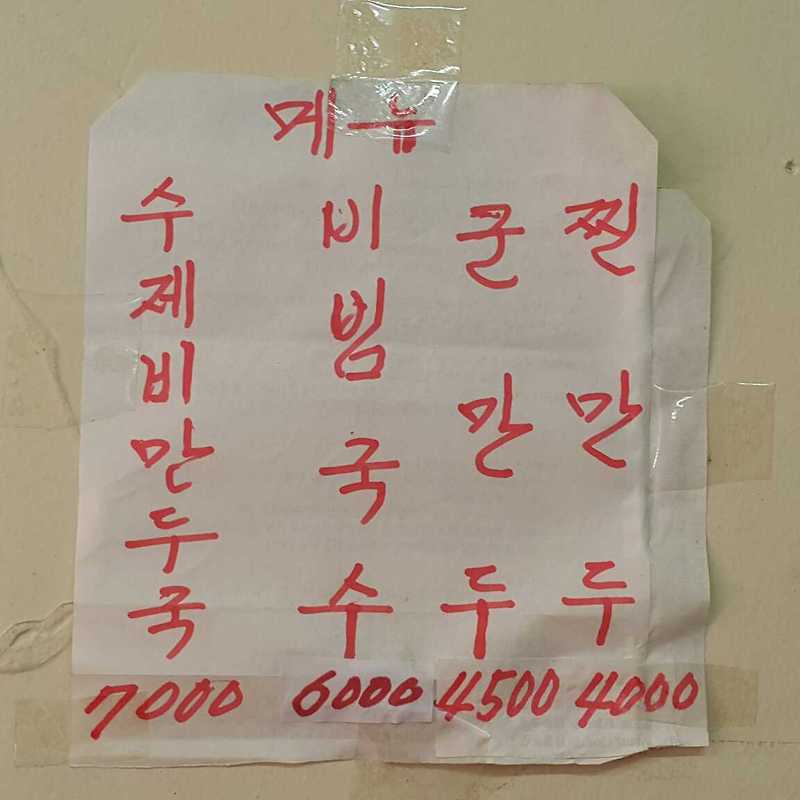 메뉴
수제비만두국
7000
비빔국수
6000
군만두
4500
찐만두
4000